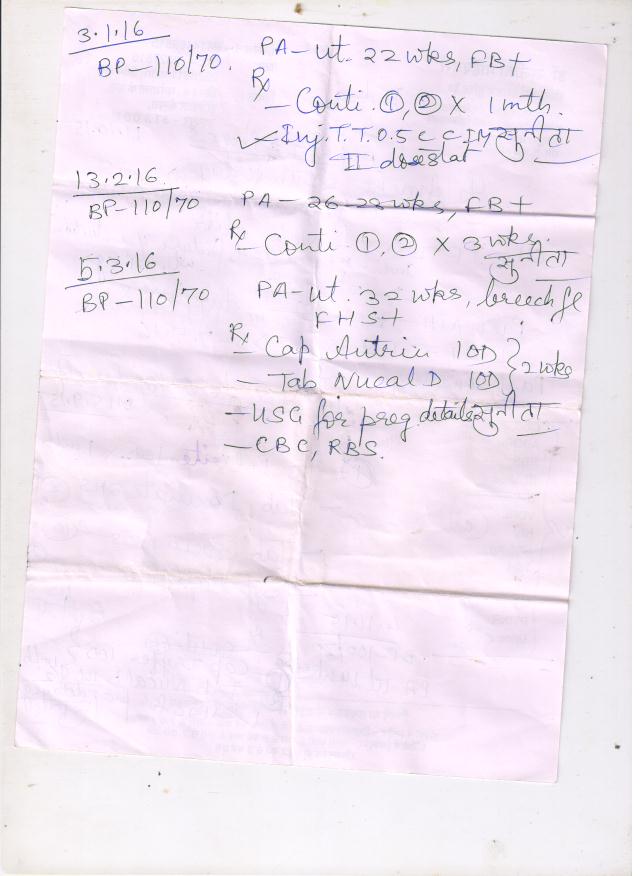 3.1.16
BP-110/70. PA-ut. 22 wks, FB+
Rx
- Conti. ①, ② X 1 mth.
✓ Inj. T.T. 0.5 cc IM सुनीता
II dose stat
13.2.16
BP-110/70 PA - 26-28 wks, FB+
Rx - Conti ①, ② X 3 wks.
सुनीता
5.3.16
BP-110/70 PA-ut. 32 wks, breech fl
FHS+
Rx
- Cap Autrin 1OD } 2 wks
- Tab Nucal D 1OD
- USG for preg. details सुनीता
- CBC, RBS.